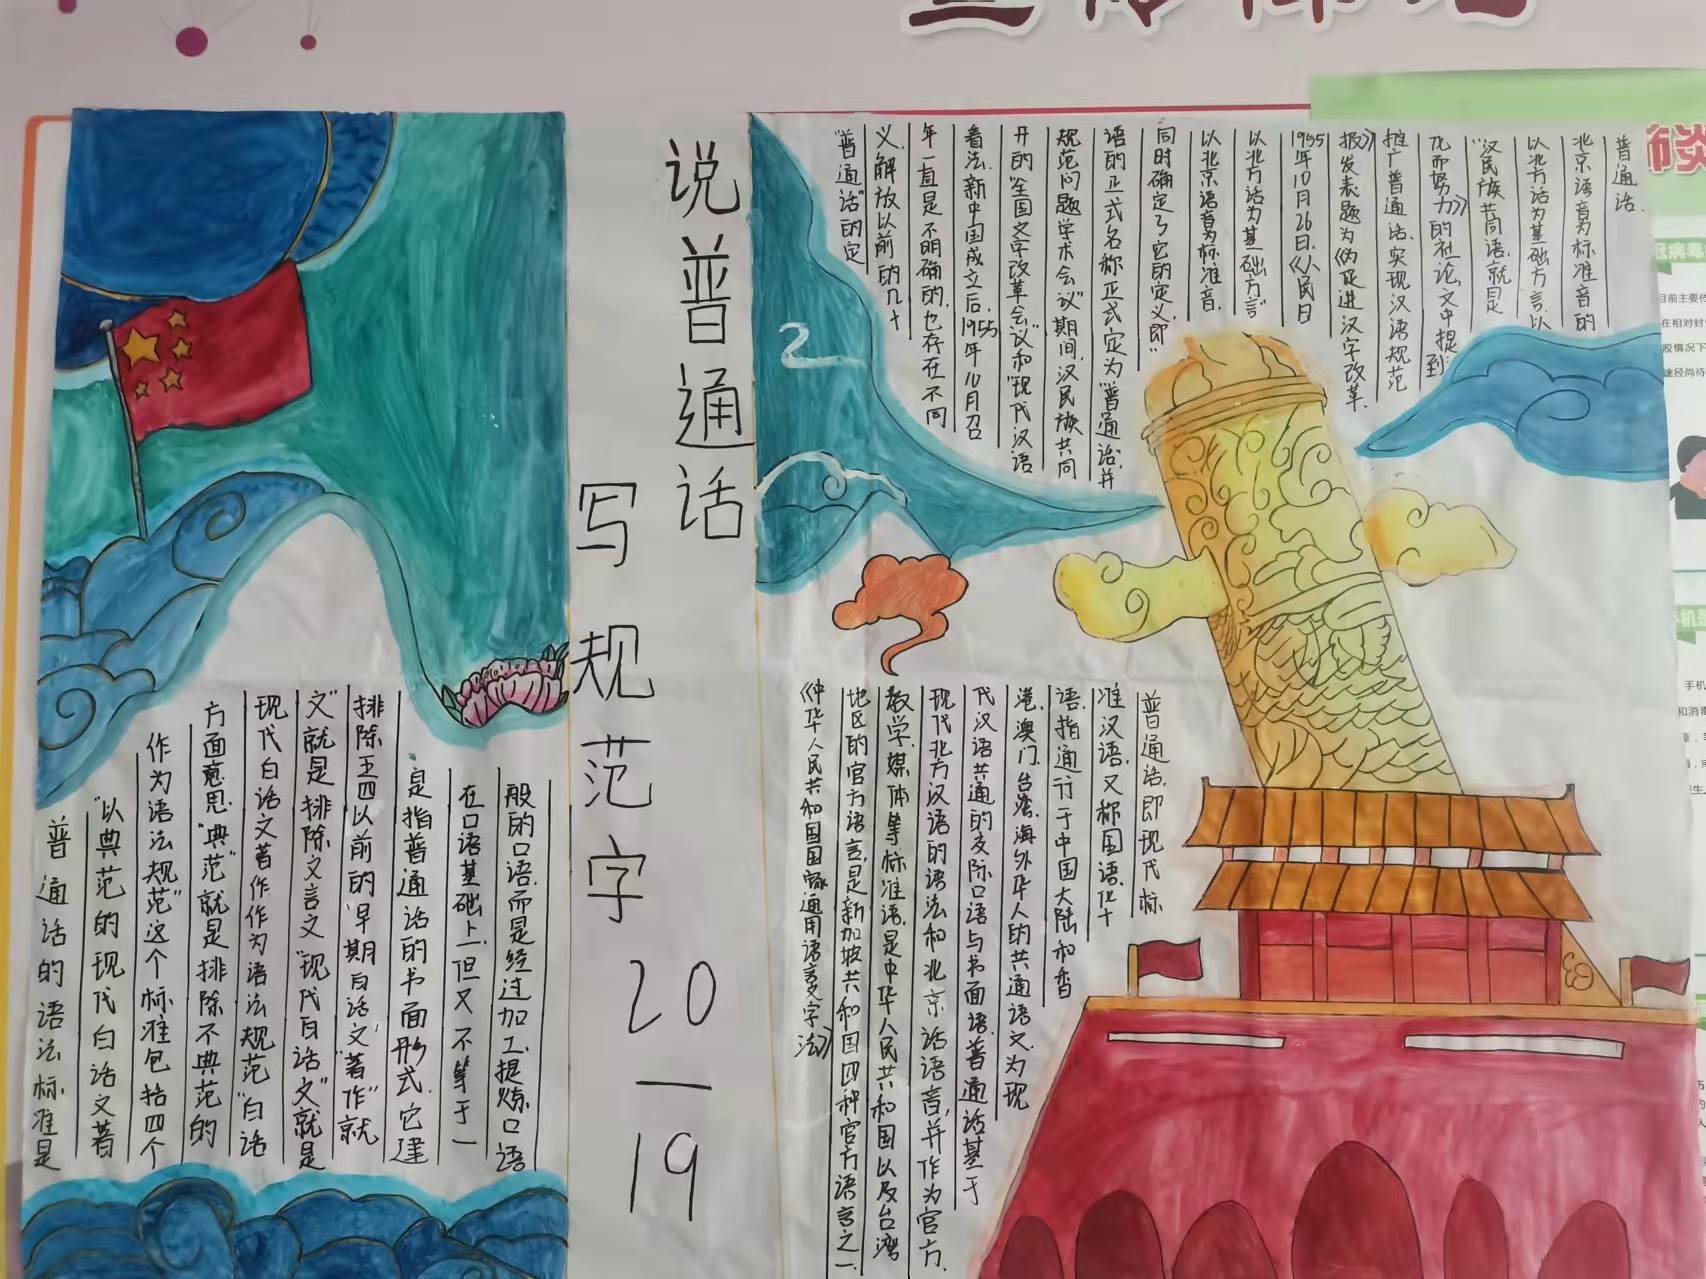 说普通话
写规范字
20—19
普通话的语法标准是
“以典范的现代白话文著
作为语法规范”这个标准包括四个
方面意思.“典范”就是排除不典范的
现代白话文著作作为语法规范“白话
文”就是排除文言文“现代白话文”就是
排除五四以前的“早期白话文”“著作”就
是指普通话的书面形式.它建
在口语基础上.但又不等于一
般的口语.而是经过加工.提炼口语
“普通话”的定
义,解放以前的几十
年一直是不明确的,也存在不同
看法.新中国成立后,1955年10月召
开的“全国文字改革会议”和“现代汉语
规范问题学术会议”期间,汉民族共同
语的正式名称正式定为“普通话”,并
同时确定了它的定义,即“
以北京语音为标准音,
以北方话为基础方言”
1955年10月26日,《人民日
报》发表题为《为促进汉字改革、
推广普通话、实现汉语规范
化而努力》的社论,文中提到
“汉民族共同语,就是
以北方话为基础方言,以
北京语音为标准音的
普通话.
普通话,即现代标
准汉语,又称国语、华
语,指通行于中国大陆和香
港,澳门,台湾,海外华人的共通语文,为现
代汉语共通的交际口语与书面语,普通话基于
现代北方汉语的语法和北京话语音,并作为官方.
教学.媒体等标准语.是中华人民共和国以及台湾
地区的官方语言,是新加坡共和国四种官方语言之一.
《中华人民共和国国家通用语言文字法》
2